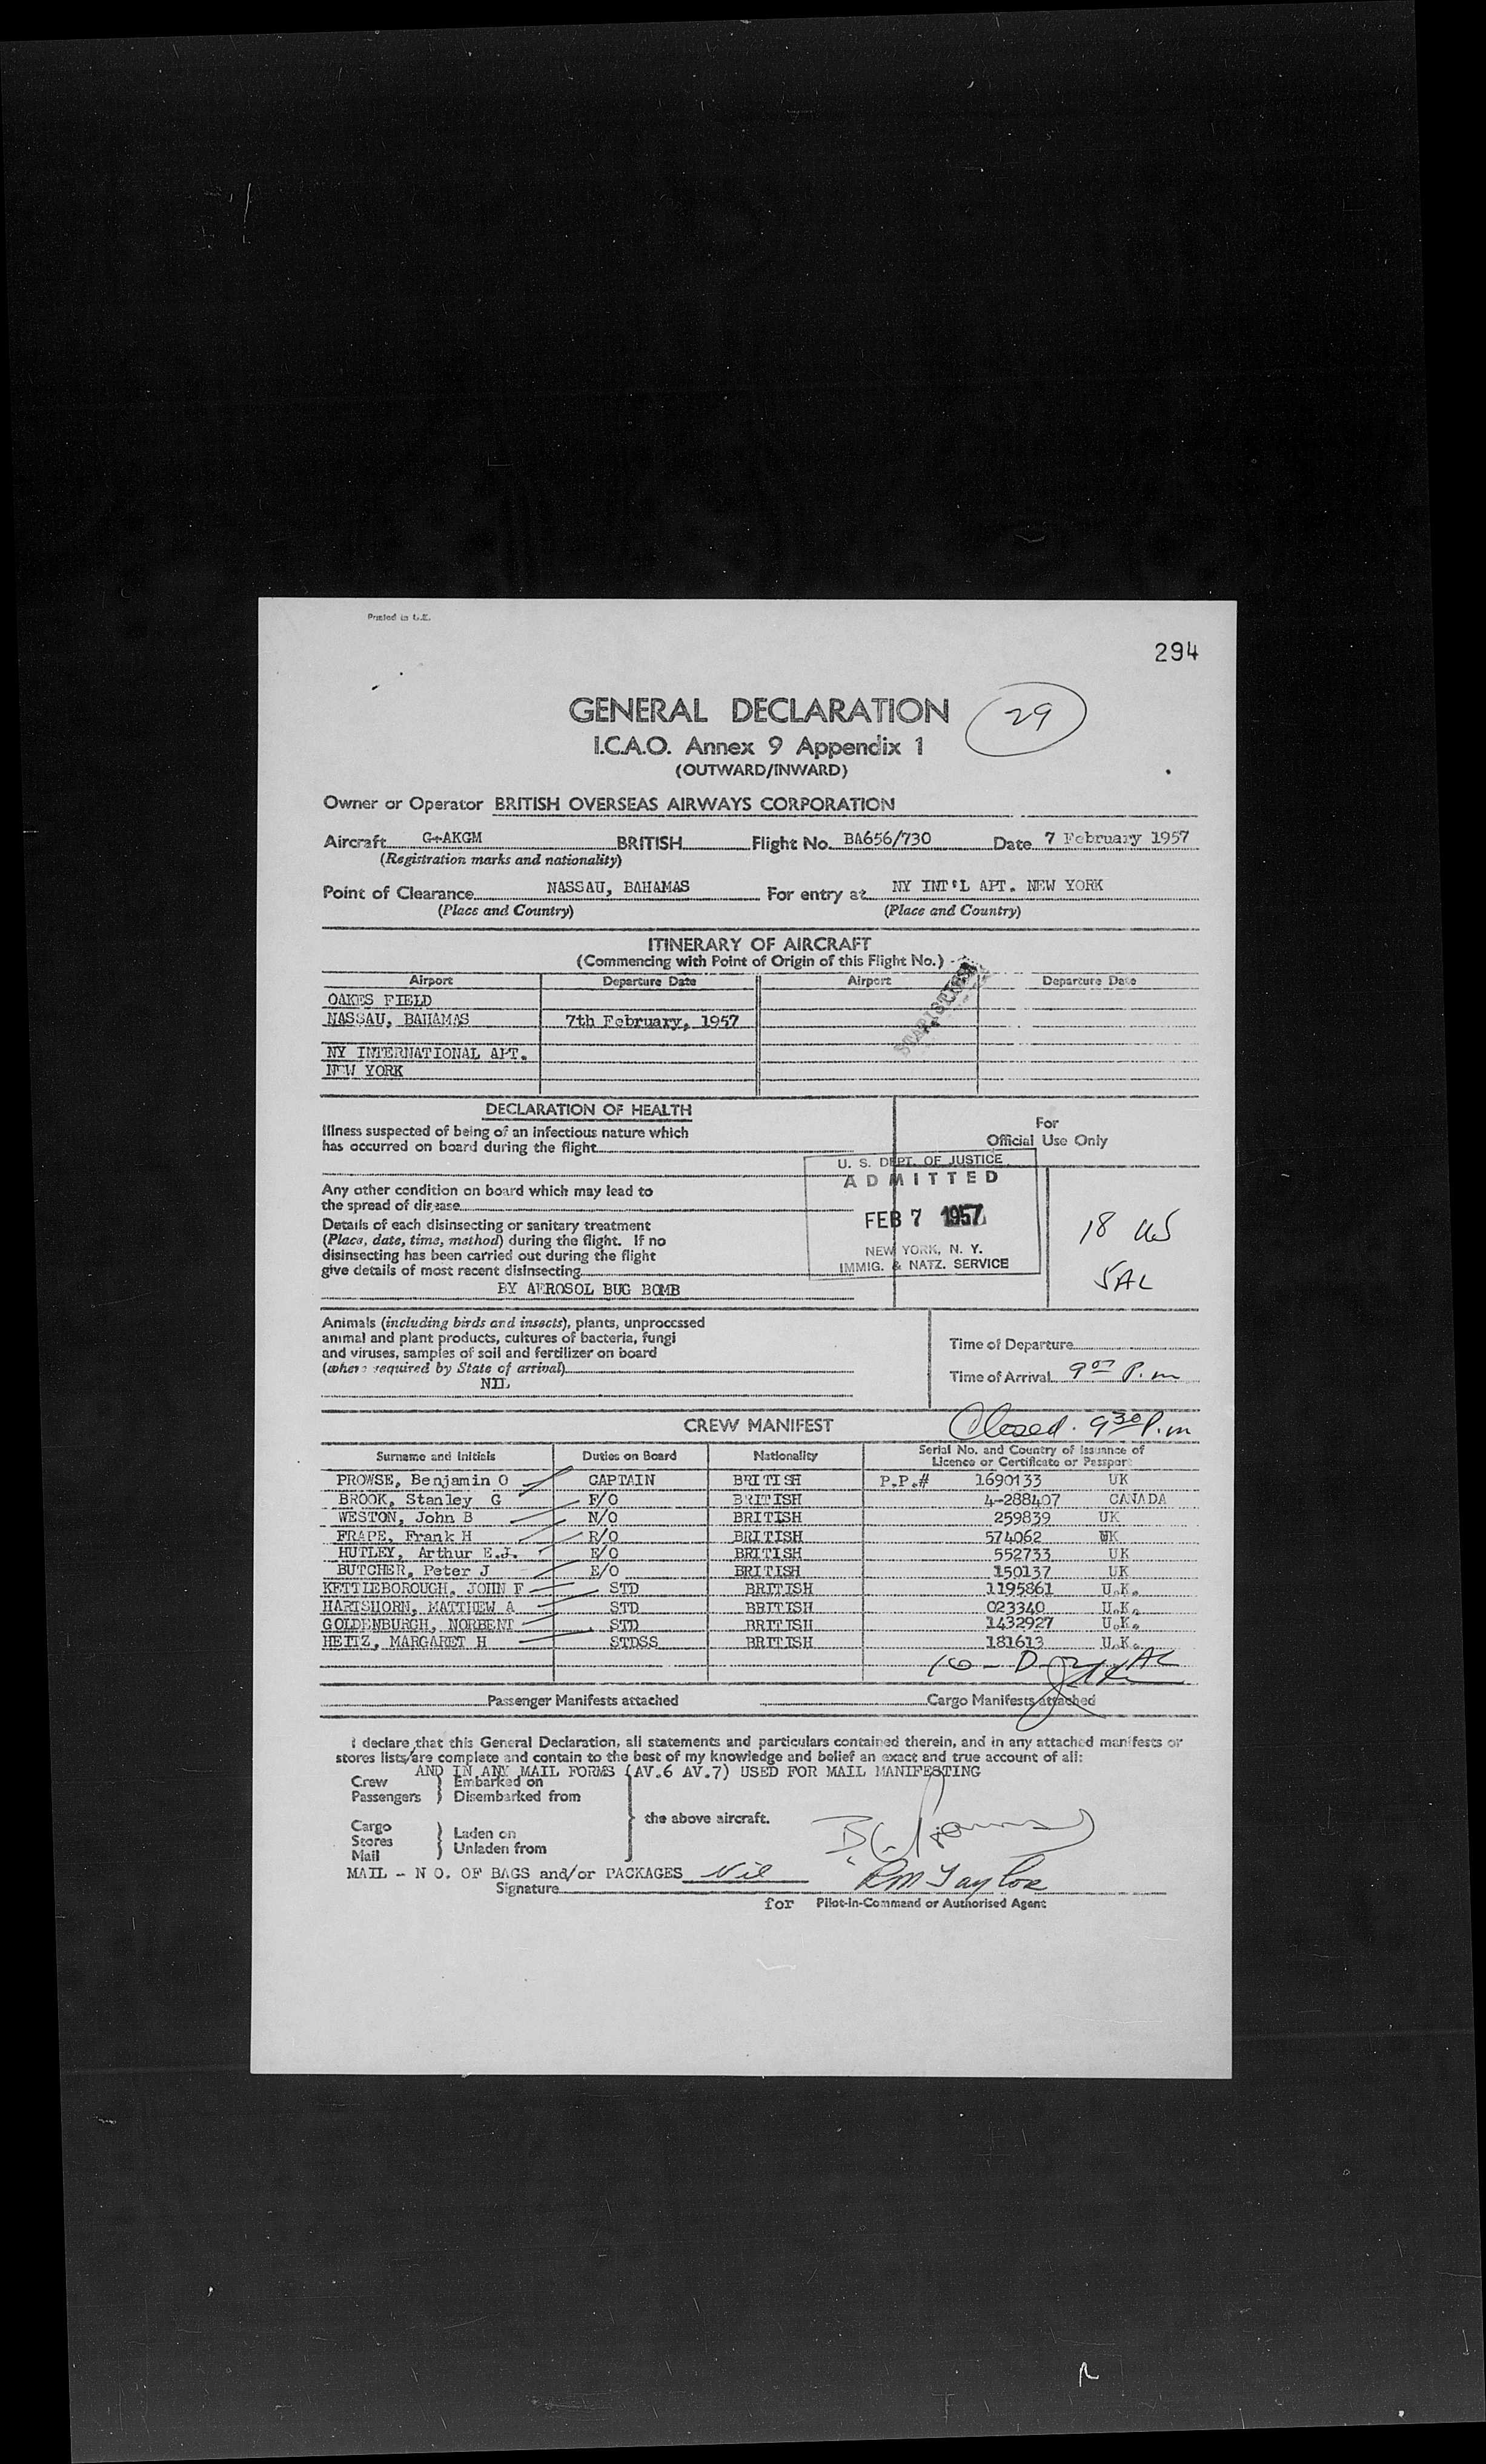 Printed in U.K.
294
GENERAL DECLARATION
29
I.C.A.O. Annex 9 Appendix 1
(OUTWARD/INWARD)
Owner or Operator BRITISH OVERSEAS AIRWAYS CORPORATION
Aircraft G-AKGM BRITISH Flight No. BA656/730 Date 7 February 1957
(Registration marks and nationality)
Point of Clearance NASSAU, BAHAMAS For entry at NY INT'L APT. NEW YORK
(Place and Country) (Place and Country)
ITINERARY OF AIRCRAFT
(Commencing with Point of Origin of this Flight No.)
Airport Departure Date Airport Departure Date
STATISTICS
OAKES FIELD
NASSAU, BAHAMAS 7th February, 1957
NY INTERNATIONAL APT.
NEW YORK
DECLARATION OF HEALTH
For
Official Use Only
Illness suspected of being of an infectious nature which
has occurred on board during the flight
U. S. DEPT. OF JUSTICE
ADMITTED
FEB 7 1957
NEW YORK, N. Y.
IMMIG. & NATZ. SERVICE
18 US
5 AL
Any other condition on board which may lead to
the spread of disease
Details of each disinsecting or sanitary treatment
(Place, date, time, method) during the flight. If no
disinsecting has been carried out during the flight
give details of most recent disinsecting
BY AEROSOL BUG BOMB
Animals (including birds and insects), plants, unprocessed
animal and plant products, cultures of bacteria, fungi
and viruses, samples of soil and fertilizer on board
(where required by State of arrival)
NIL
Time of Departure
Time of Arrival 9 07 P.m
CREW MANIFEST
Closed. 9 30 P.m
Surname and Initials Duties on Board Nationality Serial No. and Country of Issuance of Licence or Certificate or Passport
PROWSE, Benjamin O CAPTAIN BRITISH P.P.# 1690133 UK
BROOK, Stanley G F/O BRITISH 4-288407 CANADA
WESTON, John B N/O BRITISH 259839 UK
FRAPE, Frank H R/O BRITISH 574062 UK
HUTLEY, Arthur E.J. E/O BRITISH 552733 UK
BUTCHER, Peter J E/O BRITISH 150137 UK
KETTLEBOROUGH, JOHN F STD BRITISH 1195861 U.K.
HARTSHORN, MATTHEW A STD BRITISH 023340 U.K.
GOLDENBURGH, NORBENT STD BRITISH 1432927 U.K.
HEITZ, MARGARET H STDSS BRITISH 181613 U.K.
10 - D
Passenger Manifests attached Cargo Manifests attached
I declare that this General Declaration, all statements and particulars contained therein, and in any attached manifests or
stores lists/are complete and contain to the best of my knowledge and belief an exact and true account of all:
AND IN ANY MAIL FORMS (AV.6 AV.7) USED FOR MAIL MANIFESTING
Crew Embarked on
Passengers Disembarked from
the above aircraft.
Cargo
Stores Laden on
Mail Unladen from
MAIL - N O. OF BAGS and/or PACKAGES Nil
RM Taylor
Signature
for Pilot-in-Command or Authorised Agent